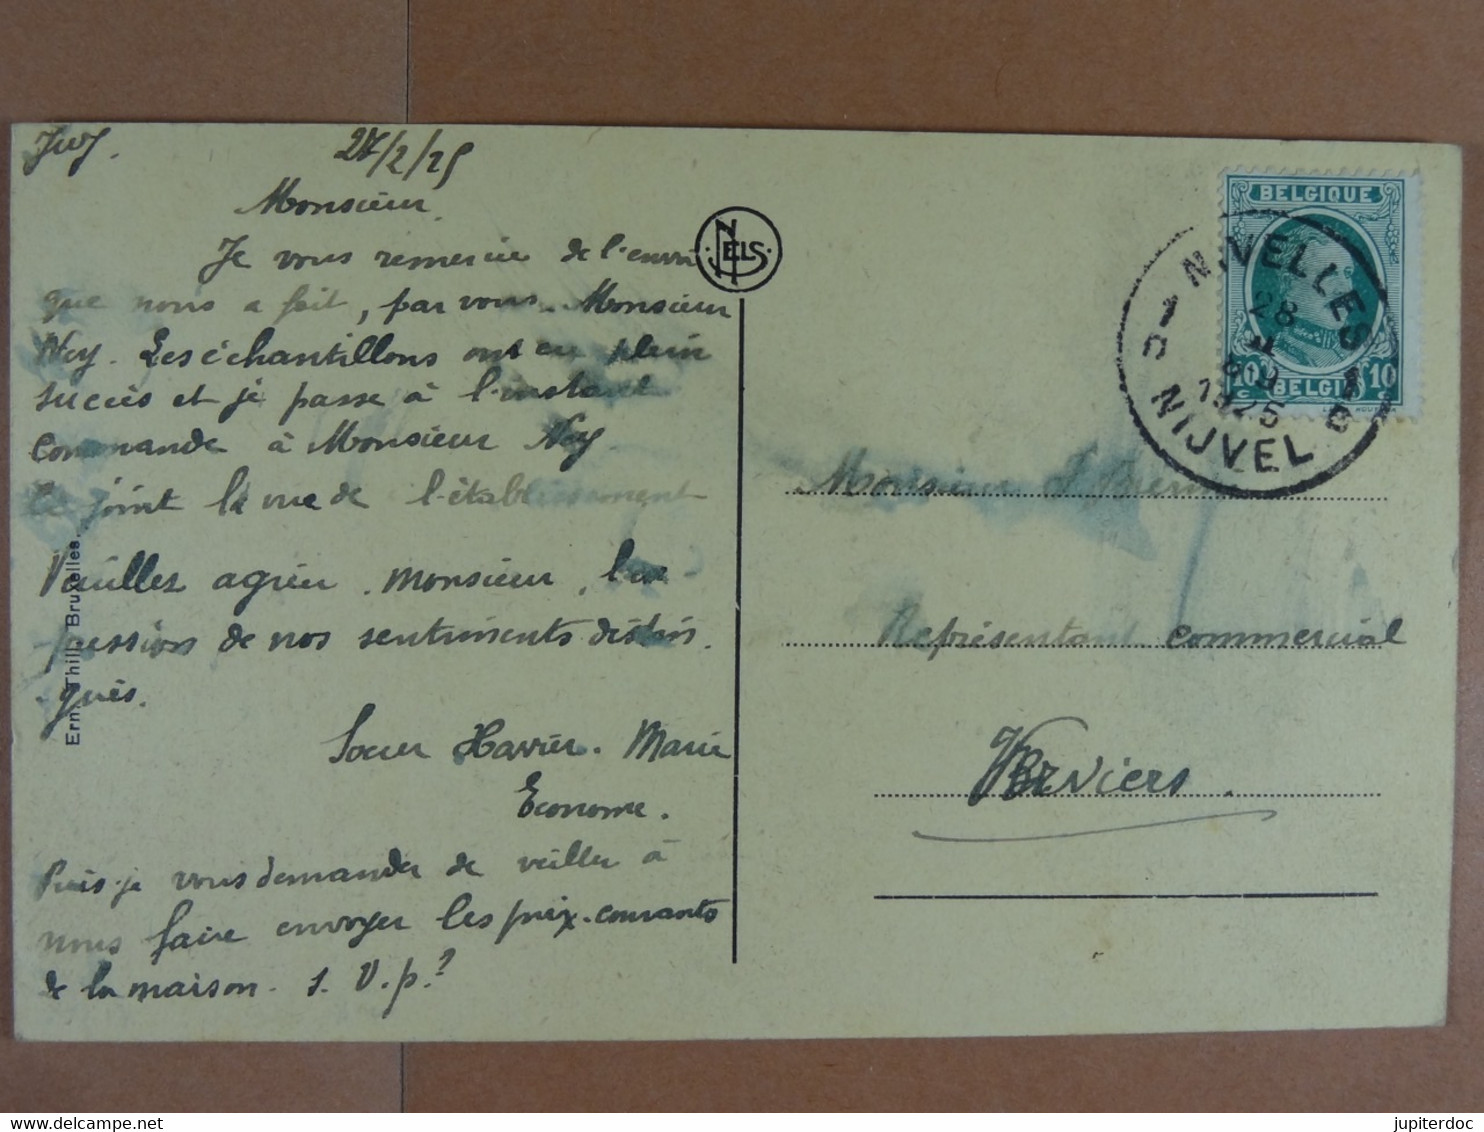 JWJ. 27/2/25
Monsieur.
Je vous remercie de l'envoi
que nous a fait, par vous Monsieur
Ney. Les échantillons ont eu plein
succès et je passe à l'instant
commande à Monsieur Ney
Ci joint la vue de l'établissement
Veuillez agréer, Monsieur, l'ex-
pression de nos sentiments distin-
gués.
Soeur Xavier. Marie
Econome.
Puis-je vous demander de veiller à
nous faire envoyer les prix-courants
de la maison. s. V. p.?
Ern. Thill, Bruxelles.
NELS
BELGIQUE
10 c BELGIË 10 c
NIVELLES
28 II
1925
NIJVEL
Monsieur
Représentant commercial
Verviers.
jupiterdoc
delcampe.net